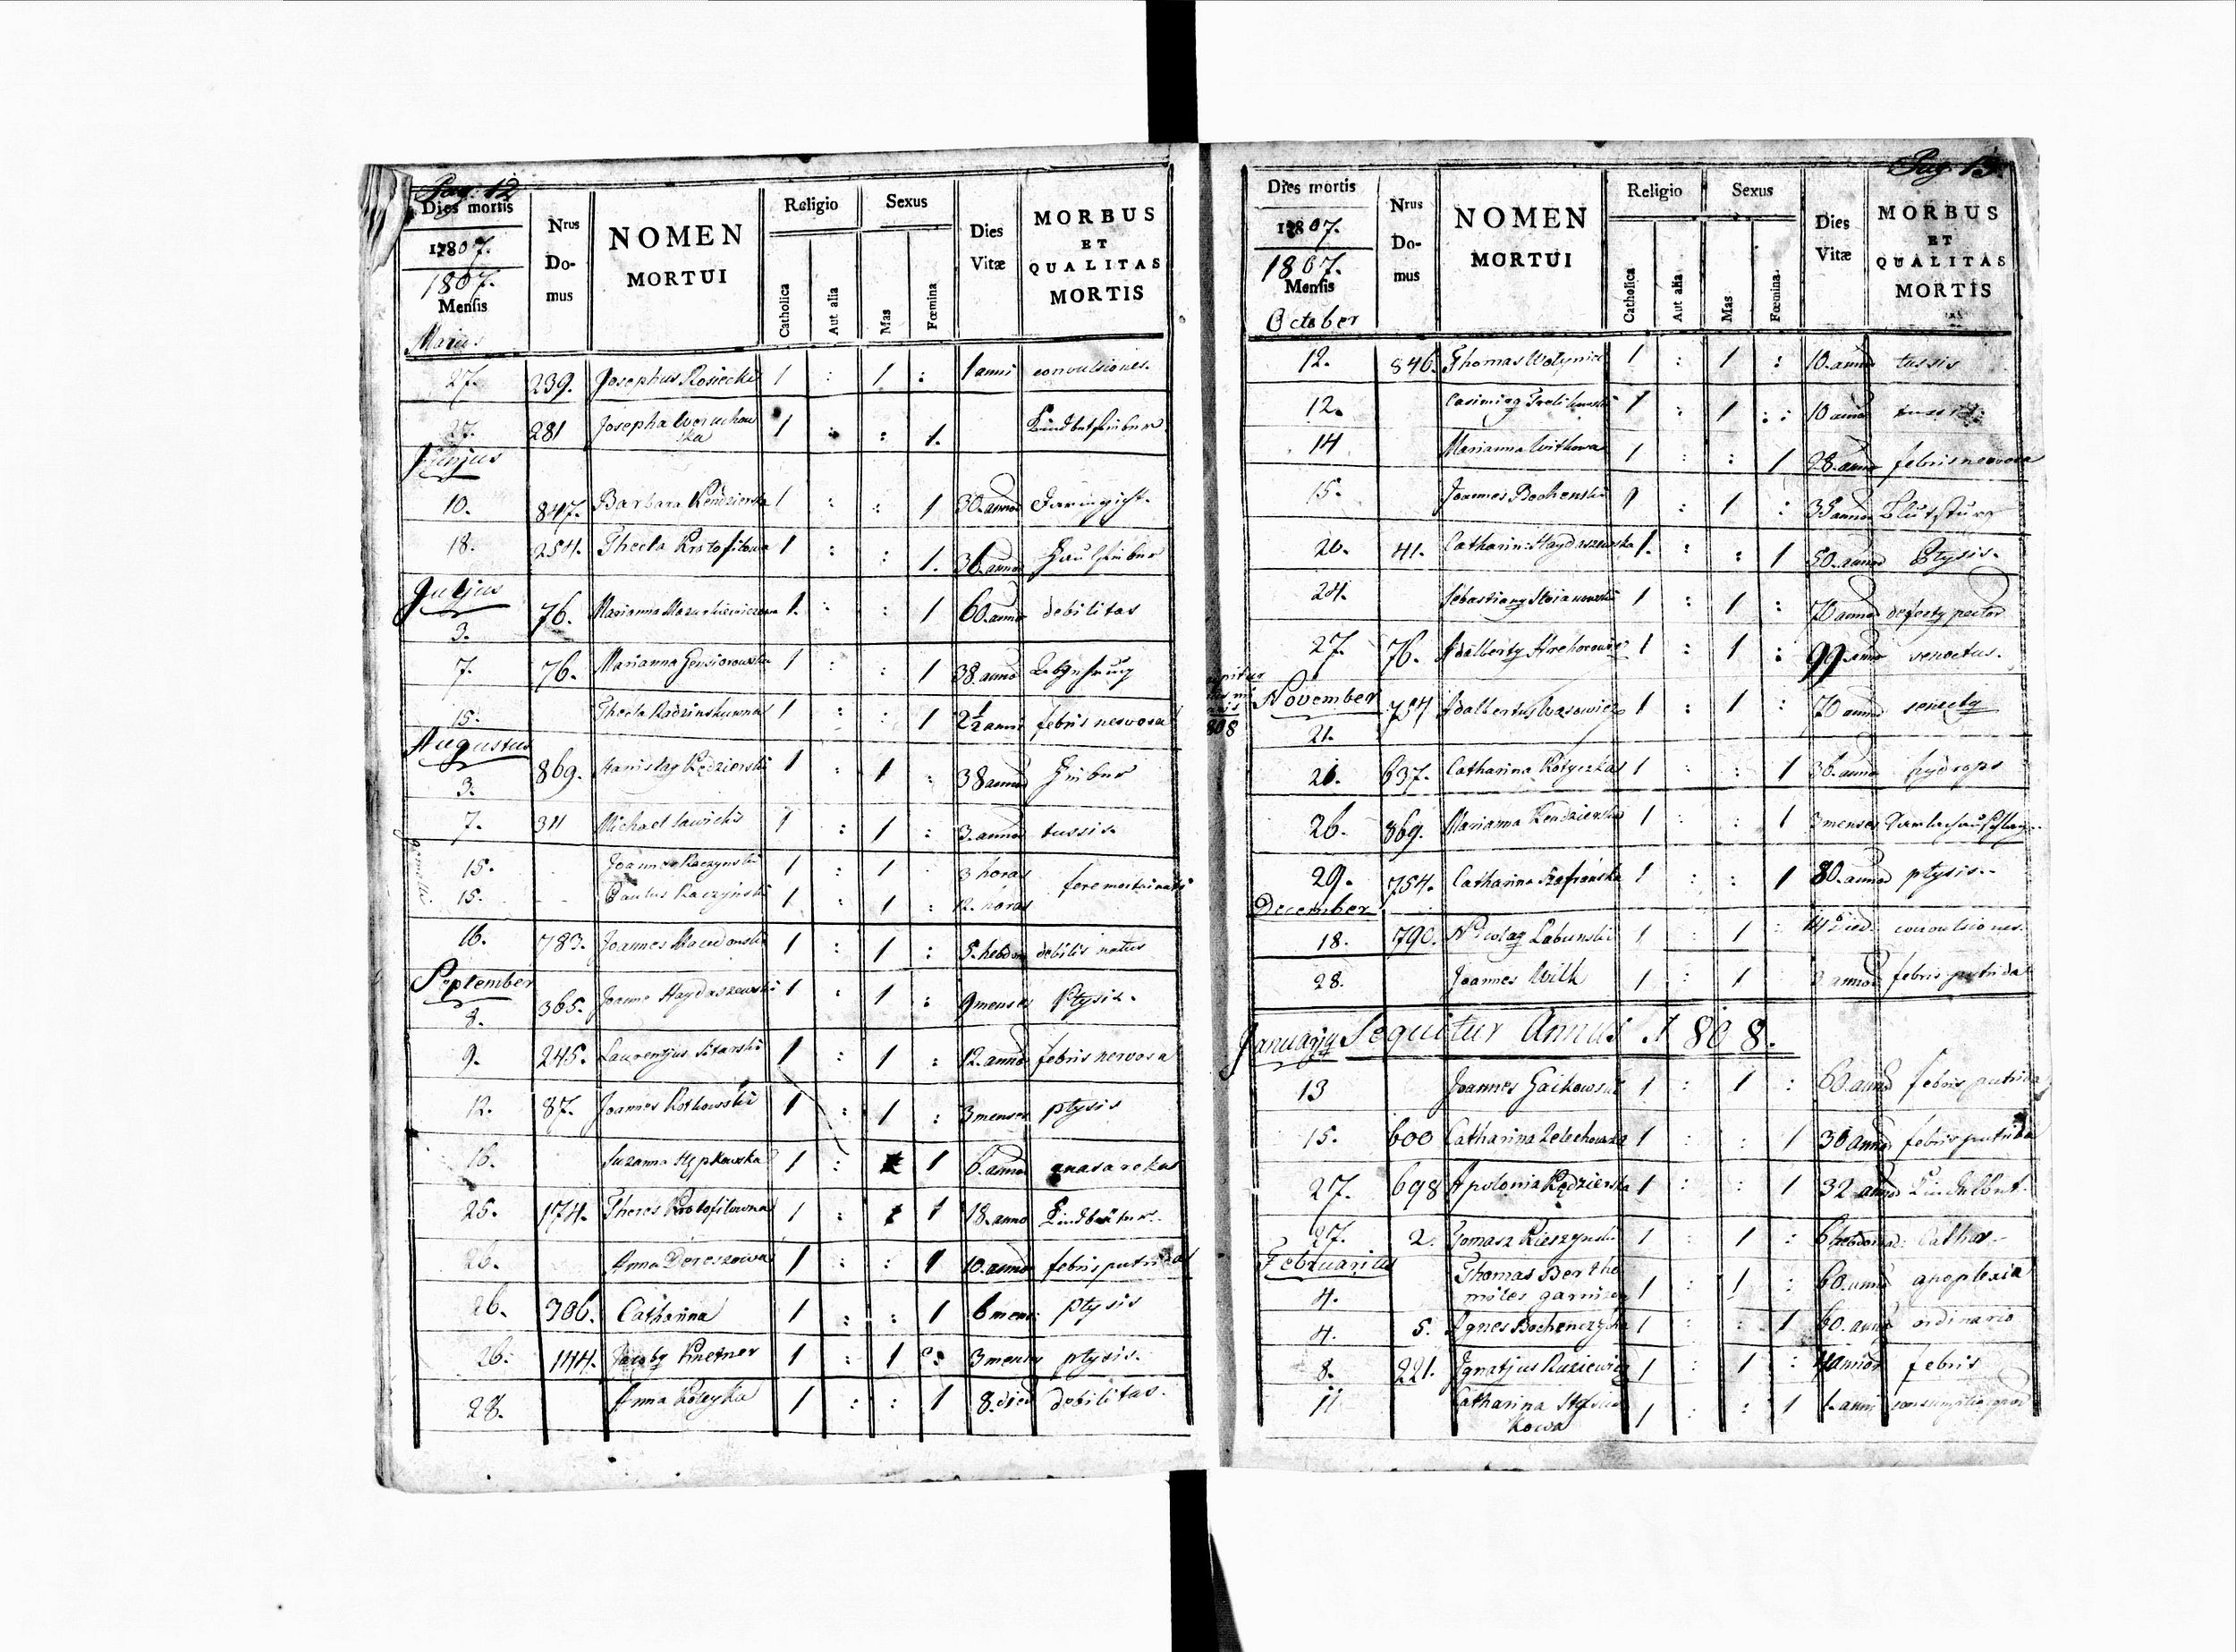 Pag. 12
Dies mortis
1807.
1807.
Mensis
Majus
Nrus
Do-
mus
NOMEN
MORTUI
Religio
Catholica
Aut alia
Sexus
Mas
Fœmina
Dies
Vitæ
MORBUS
ET
QUALITAS
MORTIS
27. 239. Josephus Rosiecki 1 : 1 : 1 anni convulsiones.
27. 281 Josepha 1 : : 1.
ska
Junjus
10. 847. Barbara Kendzierska 1 : : 1 30. annor
18. 254. Thecla Krstofilowa 1 : : 1. 36. annor
Juljus
3. 76. Marianna Mazurkiewiczowa 1. : : 1 60. annor debilitas
7. 76. Marianna Gensiorowska 1 : : 1 38. annor
15. Thecla Radzinskuwna 1 : : 1 2½ anni febris nervosa
Augustus
3. 869. Stanislaq Kędzierski 1 : 1 : 38 annor
7. 311 Michael Sawicki 1 : 1 : 3. annor tussis.
15. Joannes Raczynski 1 : 1 3 horas
15. Paulus Raczynski 1 : 1 : 12. horas fere mortui nati
16. 783. Joannes Macedonski 1 : 1 : 5. hebdom debilis natus
September
8. 365. Joannes Haydaszewski 1 : 1 : 9 menses Ptysis.
9. 245. Laurentjus Sitarski 1 : 1 : 12. annor febris nervosa
12. 87. Joannes Kotkowski 1 : 1 : 3 menses ptysis
16. Suzanna Stępkowska 1 : 1 6. annor
25. 174. Theres Krstofilowna 1 : 1 18. annor
26. Anna Dereszowa 1 : : 1 10. annor febris putrida
26. 306. Catharina 1 : : 1 6 mens: ptysis
26. 144. Jacobq Knetner 1 : 1 : 3 menses ptysis.
28. Anna Koleyka 1 : : 1 8. dies debilitas.
Pag. 13.
Dies mortis
1807.
1807.
Mensis
October
Nrus
Do-
mus
NOMEN
MORTUI
Religio
Catholica
Aut alia
Sexus
Mas
Fœmina
Dies
Vitæ
MORBUS
ET
QUALITAS
MORTIS
12. 846. Thomas Wolynice 1 : 1 : 10. annor tussis
12. Casimirq 1 : 1 : : 10 annor tussis
14 Marianna Witkowa 1 : : 1 28. annor febris nervosa
15. Joannes Bochenski 1 1 : 35 annor Blutsturz
20. 41. Catharin: Haydaszewska 1. : : 1 50. annor Ptysis.
24. Sebastianq Stoianowski 1 : 1 : 70 annor defectq pector
27. 76. Adalbertq Hrehorowicz 1 : 1 : 99 annor senectus.
November
21. 754 Adalbertus Wasowicz 1 : 1 : 70 annor
808
26. 637. Catharina Kotyczka 1 : : 1 36. annor hydrops
26. 869. Marianna Kendzierska 1 : : 1 3 menses
29. 754. Catharina Szafranska 1 : : 1 80. annor ptysis.
December
18. 790. Nicolaq Labunski 1 : 1 : 14 dies convulsiones.
28. Joannes Wilk 1 : 1 annor febris putrida
Januarjq Sequitur Annus 1808.
13 Joannes Gaikowski 1 : 1 : 60. annor febris putrida
15. 600 Catharina Zelechowska 1 : : 1 30 annor febris putrida
27. 698 Apolonia Kędzierska 1 : : 1 32 annor
27. 2. Tomasz Kieszynski 1 : 1 : 6 hebdomad:
Februarius
4. Thomas Bertho 1 : 1 : 60. annor apoplexia
miles garnizon
4. 5. Agnes Bochenczycka 1 : : 1 60. annor ordinario
8. 221. Ignatjus Ruziewicz 1 : 1 : 4 annor febris
11 Catharina 1 : : 1 1. anni
kowa